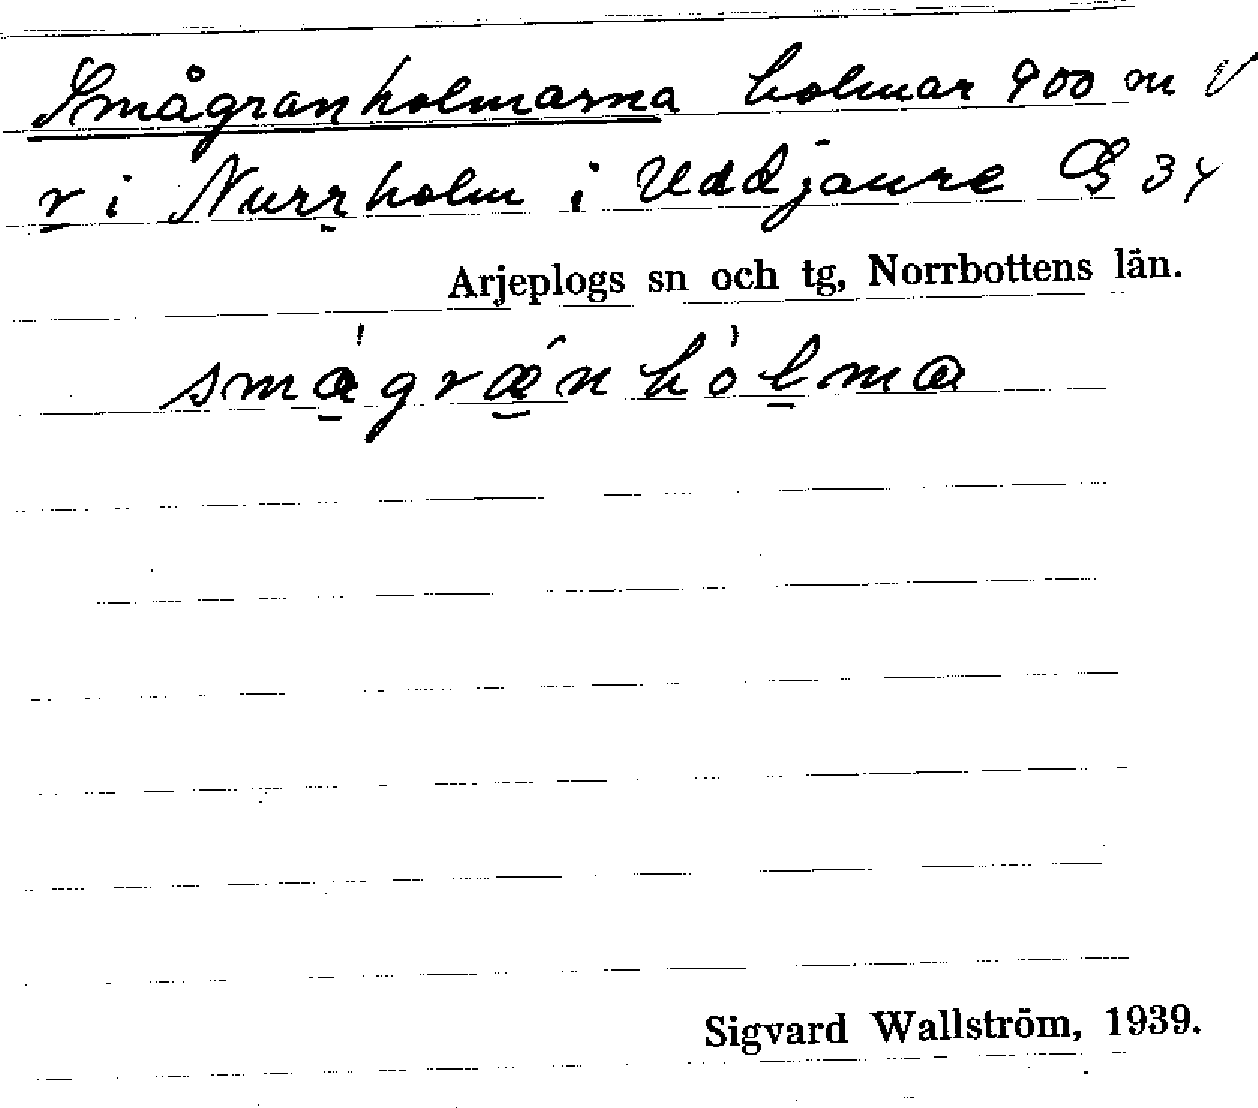 Smågranholmarna holmar 900 m V
r i Nurrholm i Uddjaure G 34
Arjeplogs sn och tg, Norrbottens län.
smågränhòlma
Sigvard Wallström, 1939.